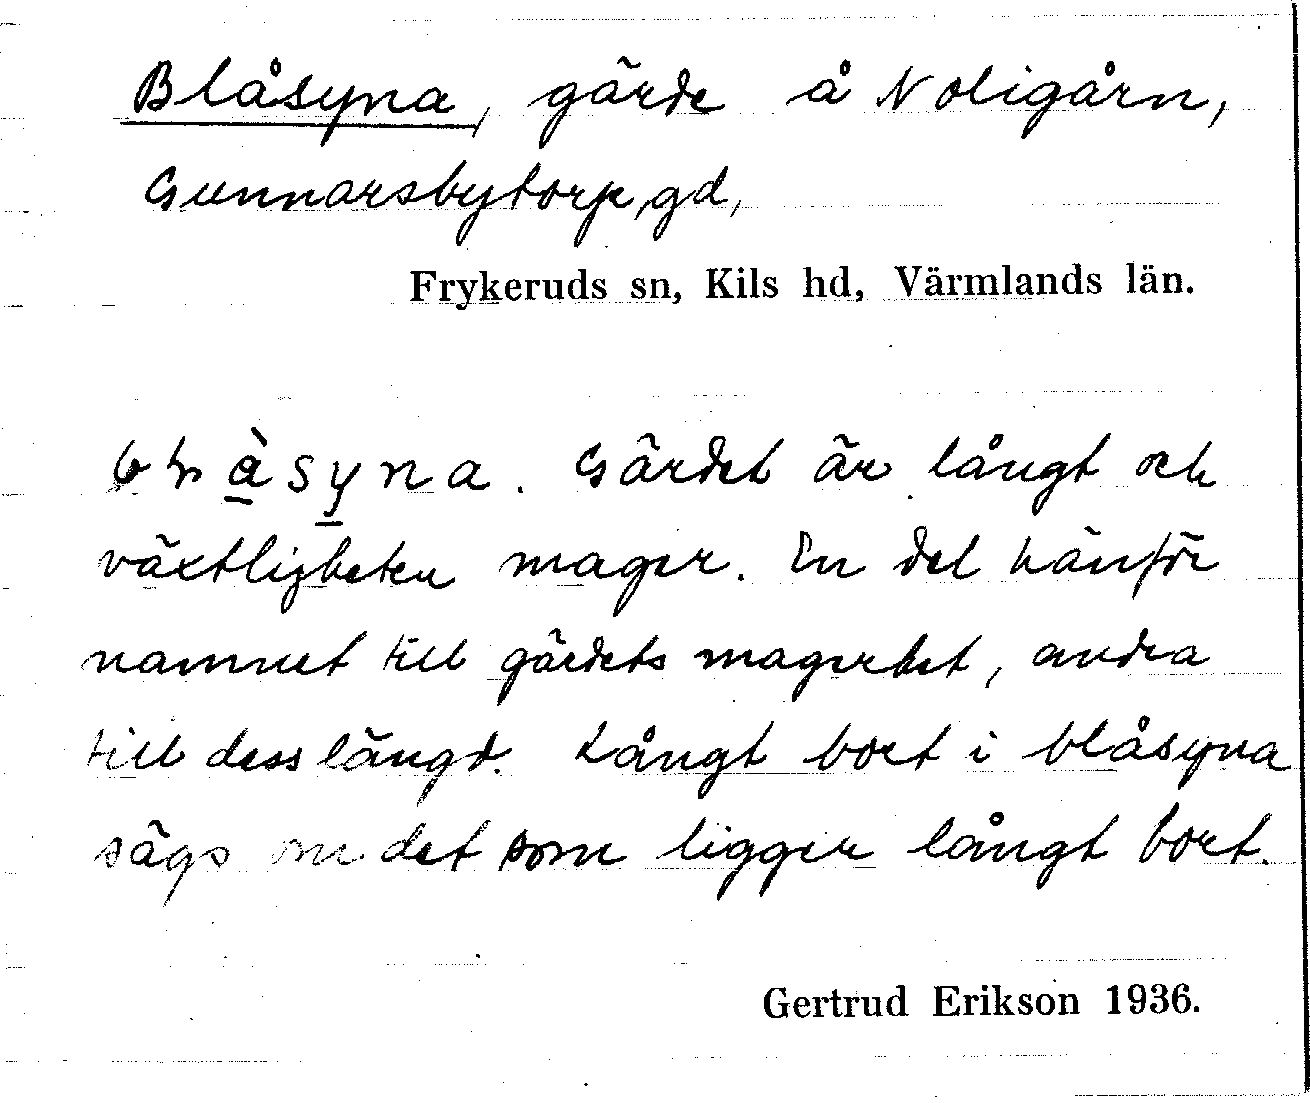 Blåsyna, gärde å Noligårn,
Gunnarsbytorp, gd,
Frykeruds sn, Kils hd, Värmlands län.
Gärdet är långt och
växtligheten mager. En del hänför
namnet till gärdets magerhet, andra
till dess längd. Långt bort i blåsyna
sägs om det som ligger långt bort.
Gertrud Erikson 1936.